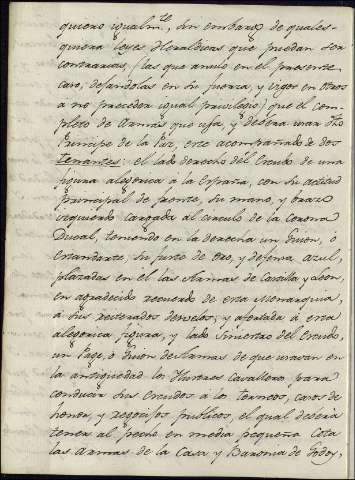 quiero igualm.te, sin embargo de quales-
quiera leyes Heraldicas que puedan ser
contrarias, (las que anulo en el presente
caso, dejandolas en su fuerza, y vigor en otros
a no preceder igual privilegio) que el com-
pleto de Armas que usa, y deberá usar dho
Principe de la Paz, esté acompañado de dos
Tenantes: el lado derecho del Escudo de una
figura alegorica á la España, con su actitud
principal de frente, su mano, y brazo
izquierdo cargada al circulo de la Corona
Ducal, teniendo en la derecha un Guion, ó
Estandarte, su fuste de oro, y defensa azul,
plazadas en él las Armas de Castilla y Leon,
en agradecido recuerdo de esta Monarquia
á sus reiterados desvelos; y afrontada á esta
alegorica figura, y lado siniestro del Escudo,
un Page, ó Guion de Armas de que usaban en
la antigüedad los Ilustres Cavalleros para
conducir sus Escudos á los Torneos, casos de
honra, y regocijos publicos, el qual deberá
tener al pecho en media pequeña Cota
las Armas de la Casa y Baronia de Godoy,